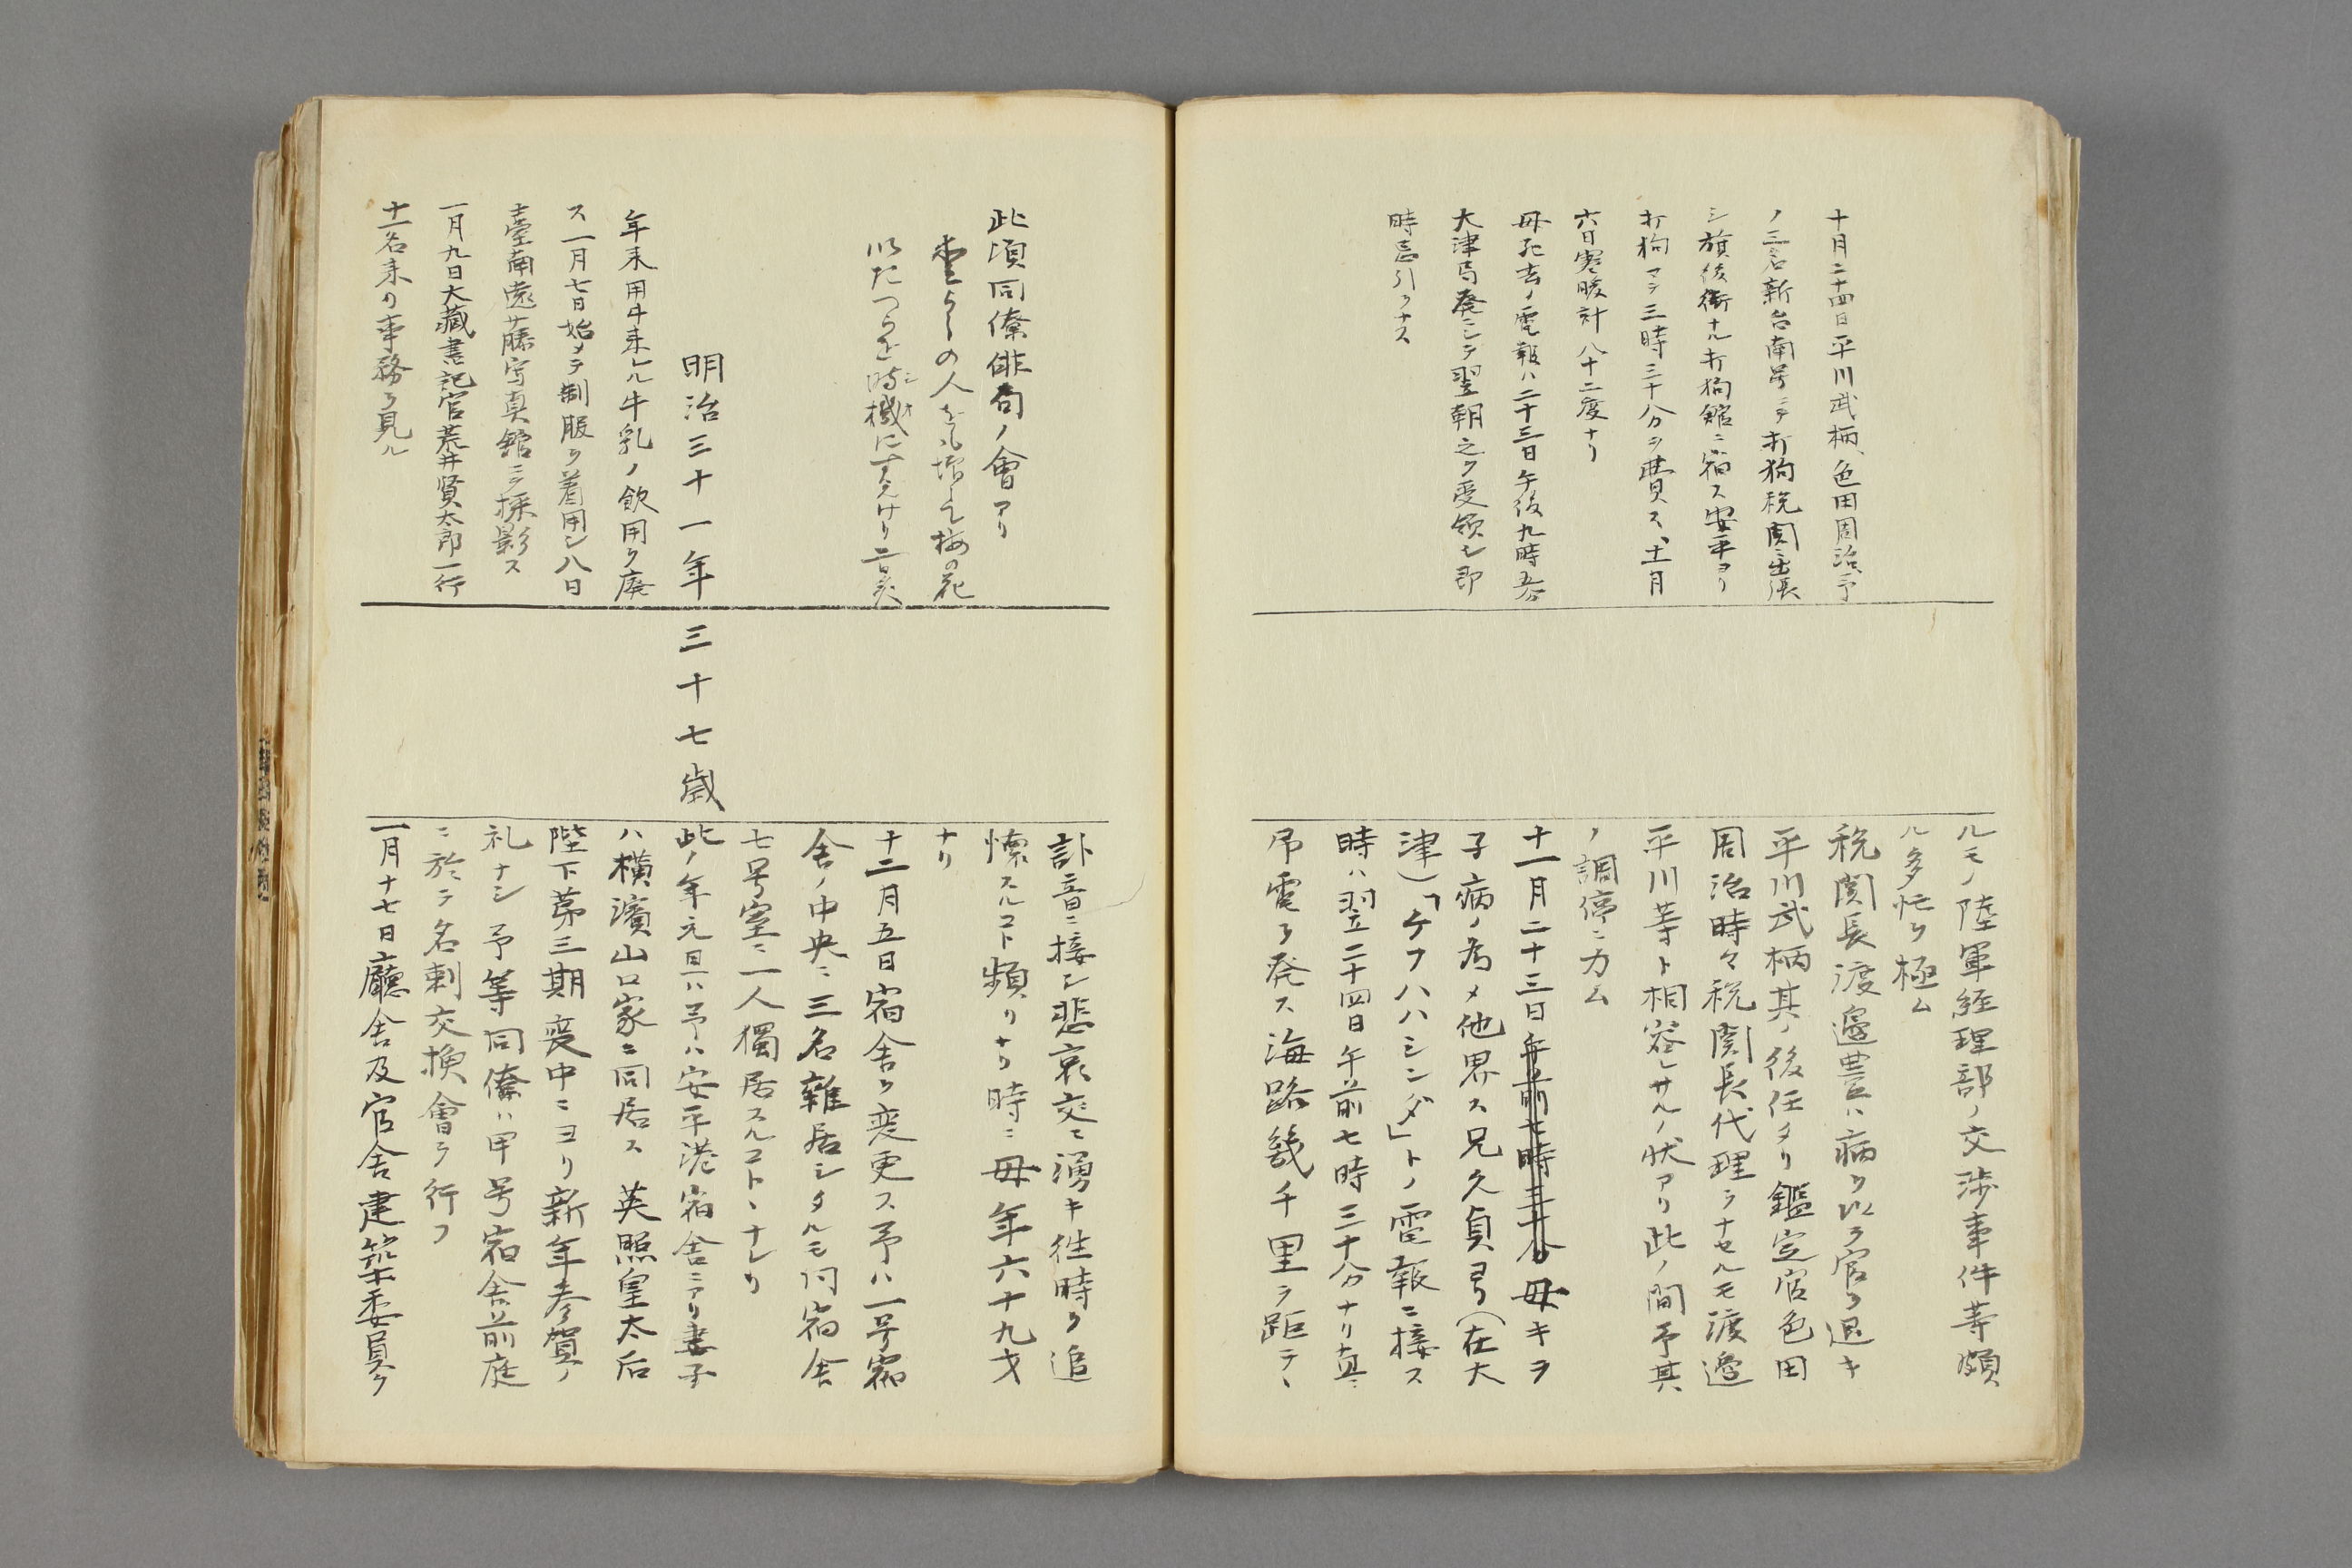 十月二十四日平川武柄、色田周治、予
ノ三名新台南号ニテ打狗税関ニ出張
シ旗後街ナル打狗館ニ宿ス安平ヨリ
打狗マテ三時三十分ヲ費ス、十一月
六日寒暖計八十二度ナリ
母死去ノ電報ハ二十三日午後九時五分
大津局発ニシテ翌朝之ヲ受領シ即
時忌引ヲナス
ルモノ陸軍経理部ノ交渉事件等頗
ル多忙ヲ極ム
税関長渡邉豊ハ病ヲ以テ官ヲ退キ
平川武柄其ノ後任タリ鑑定官色田
周治時々税関長代理ヲナセルモ渡邉
平川等ト相容レサルノ状アリ此ノ間予其
ノ調停ニ力ム
十一月二十三日午前七時三十分母キヲ
子病ノ為メ他界ス兄久貞号(在大
津)「ケフハハシンダ」トノ電報ニ接ス
時ハ翌二十四日午前七時三十分ナリ直ニ
吊電ヲ発ス海路幾千里ヲ距テ、
此頃同僚俳句ノ會アリ
の人を梅の花
時機に
明治三十一年 三十七歳
年来用ヰ来レル牛乳ノ飲用ヲ廃
ス一月七日始メテ制服ヲ着用シ八日
臺南遠藤写真館ニテ採影ス
一月九日大藏書記官荒井賢太郎一行
十一名来リ事務ヲ見ル
訃音ニ接シ悲哀交々湧キ往時ヲ追
懐スルコト頻リナリ時ニ母年六十九才
ナリ
十二月五日宿舎ヲ変更ス予ハ一号宿
舎ノ中央ニ三名雑居シタルモ同宿舎
七号室ニ一人獨居スルコトヽナレリ
此ノ年元旦ハ予ハ安平港宿舎ニアリ妻子
ハ横濱山口家ニ同居ス 英照皇太后
陛下第三期喪中ニヨリ新年参賀ノ
礼ナシ 予等同僚ハ甲号宿舎前庭
ニ於テ名刺交換會ヲ行フ
一月十七日廳舎及官舎建築委員ヲ